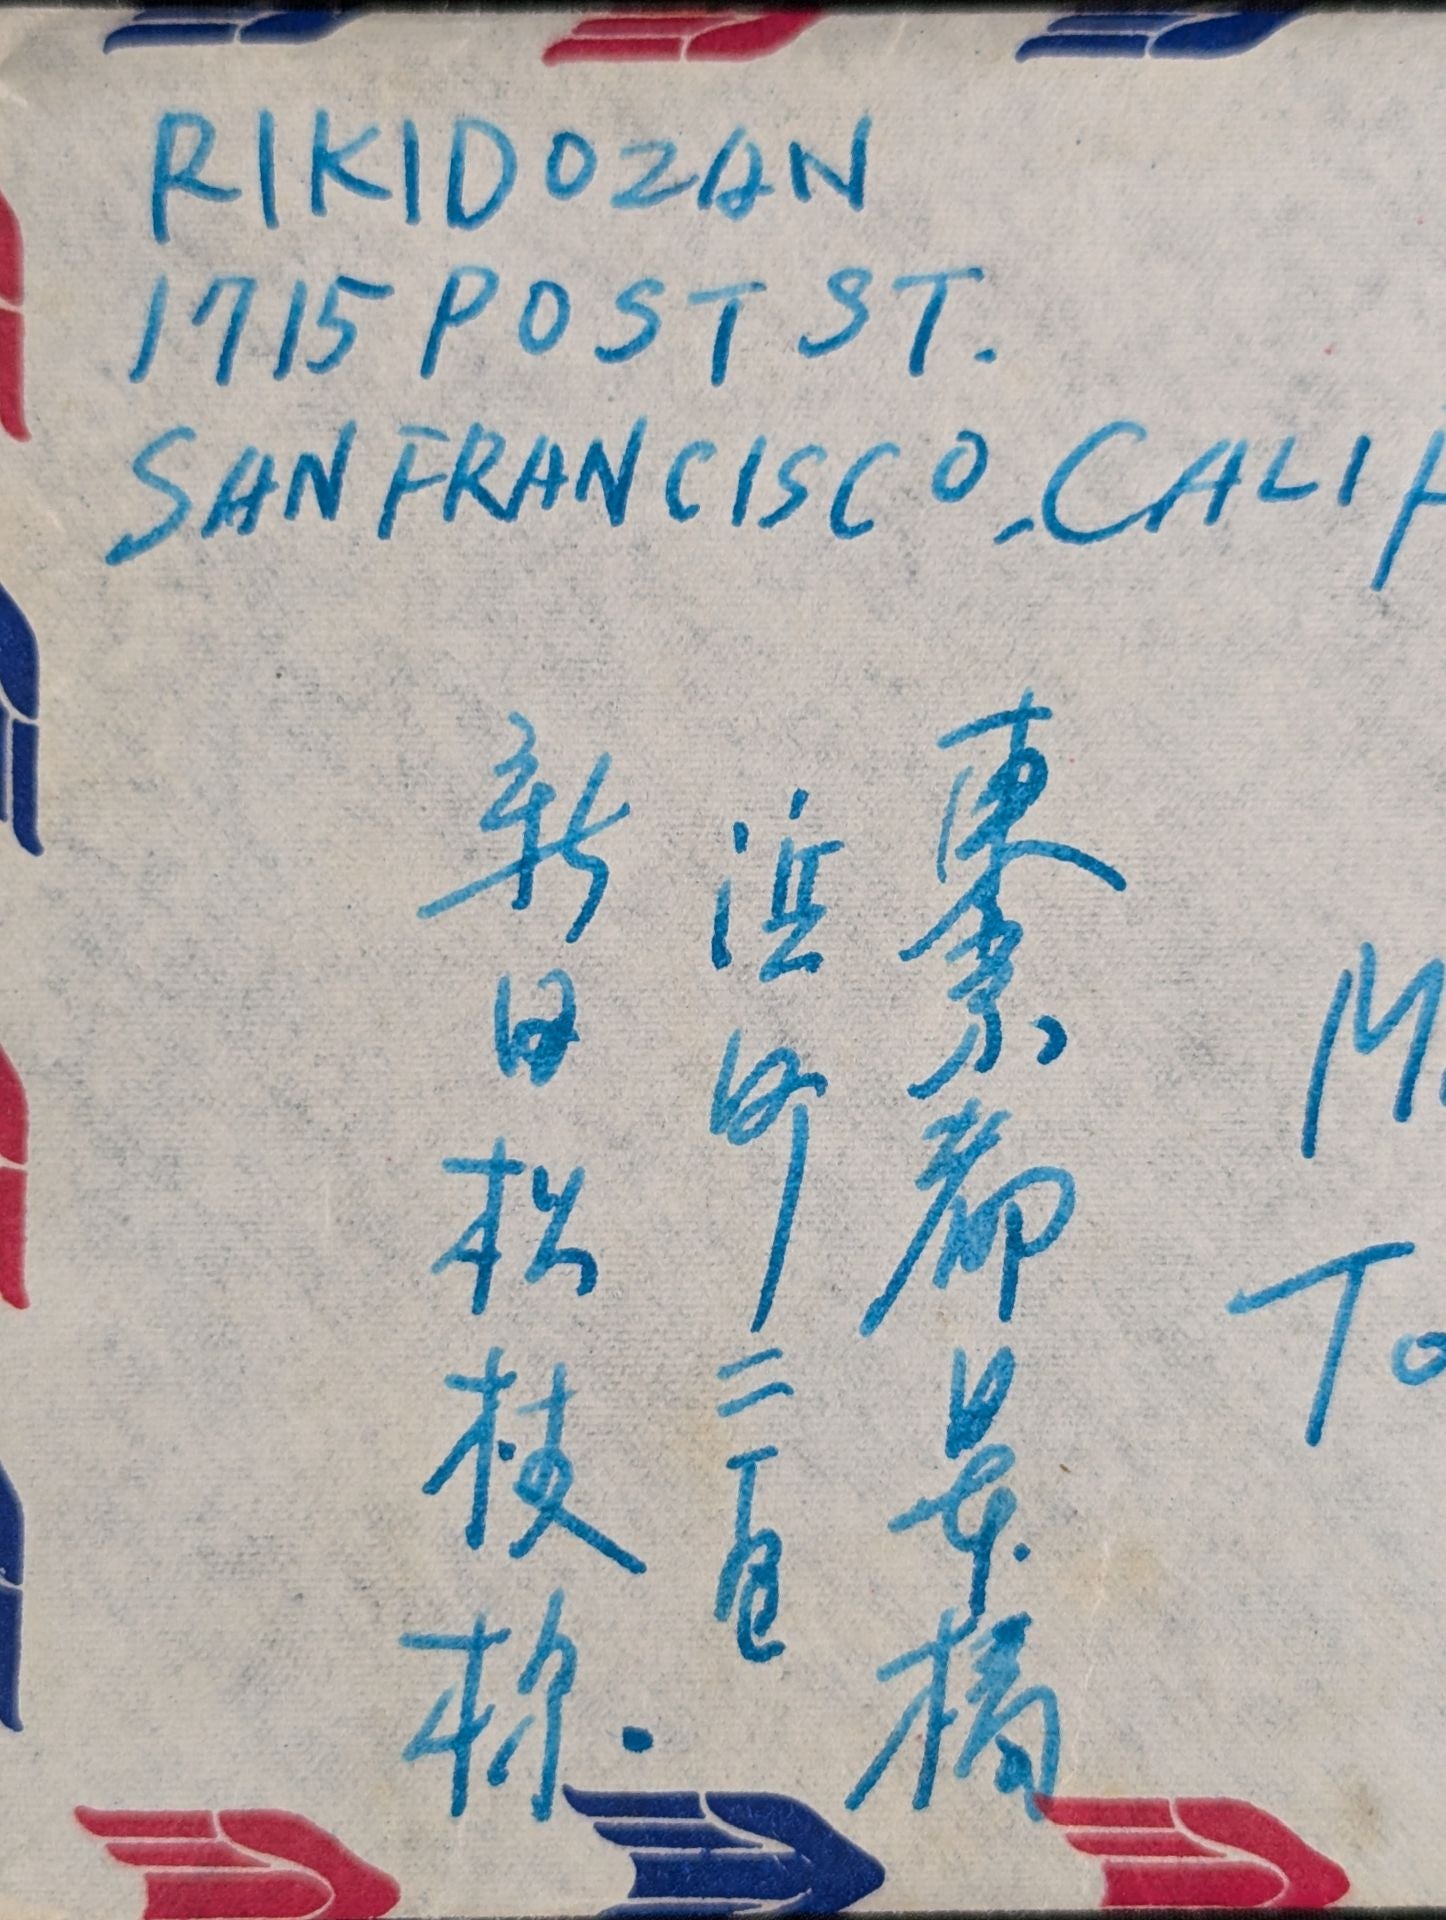 RIKIDOZAN
1715 POST ST.
SAN FRANCISCO, CALIF
東京都日本橋
浜町二丁目
新田松枝様.
M
To